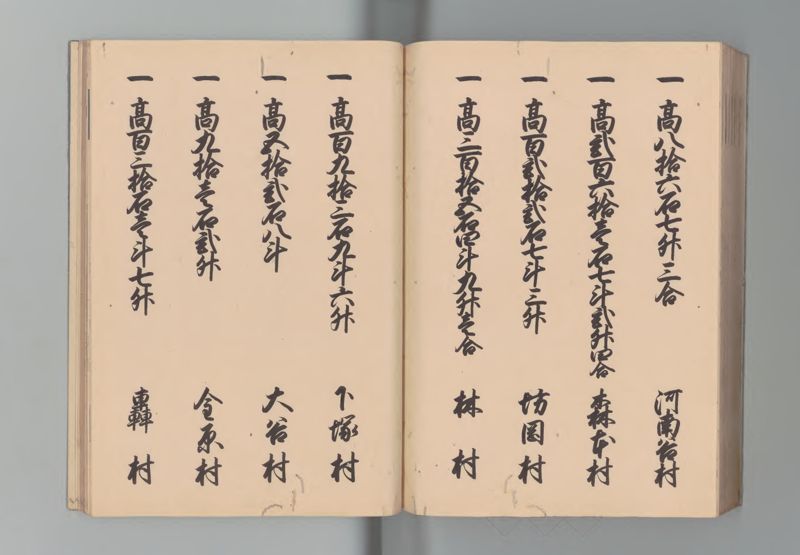 一 高八拾六石七升三合 河南谷村
一 高弐百六拾壱石七斗弐升四合 森本村
一 高百弐拾弐石七斗三升 坊岡村
一 高三百拾五石四斗九升壱合 林村
一 高百九拾三石九斗六升 下塚村
一 高五拾弐石八斗 大谷村
一 高九拾壱石弐升 金原村
一 高百三拾石壱斗七升 轟村